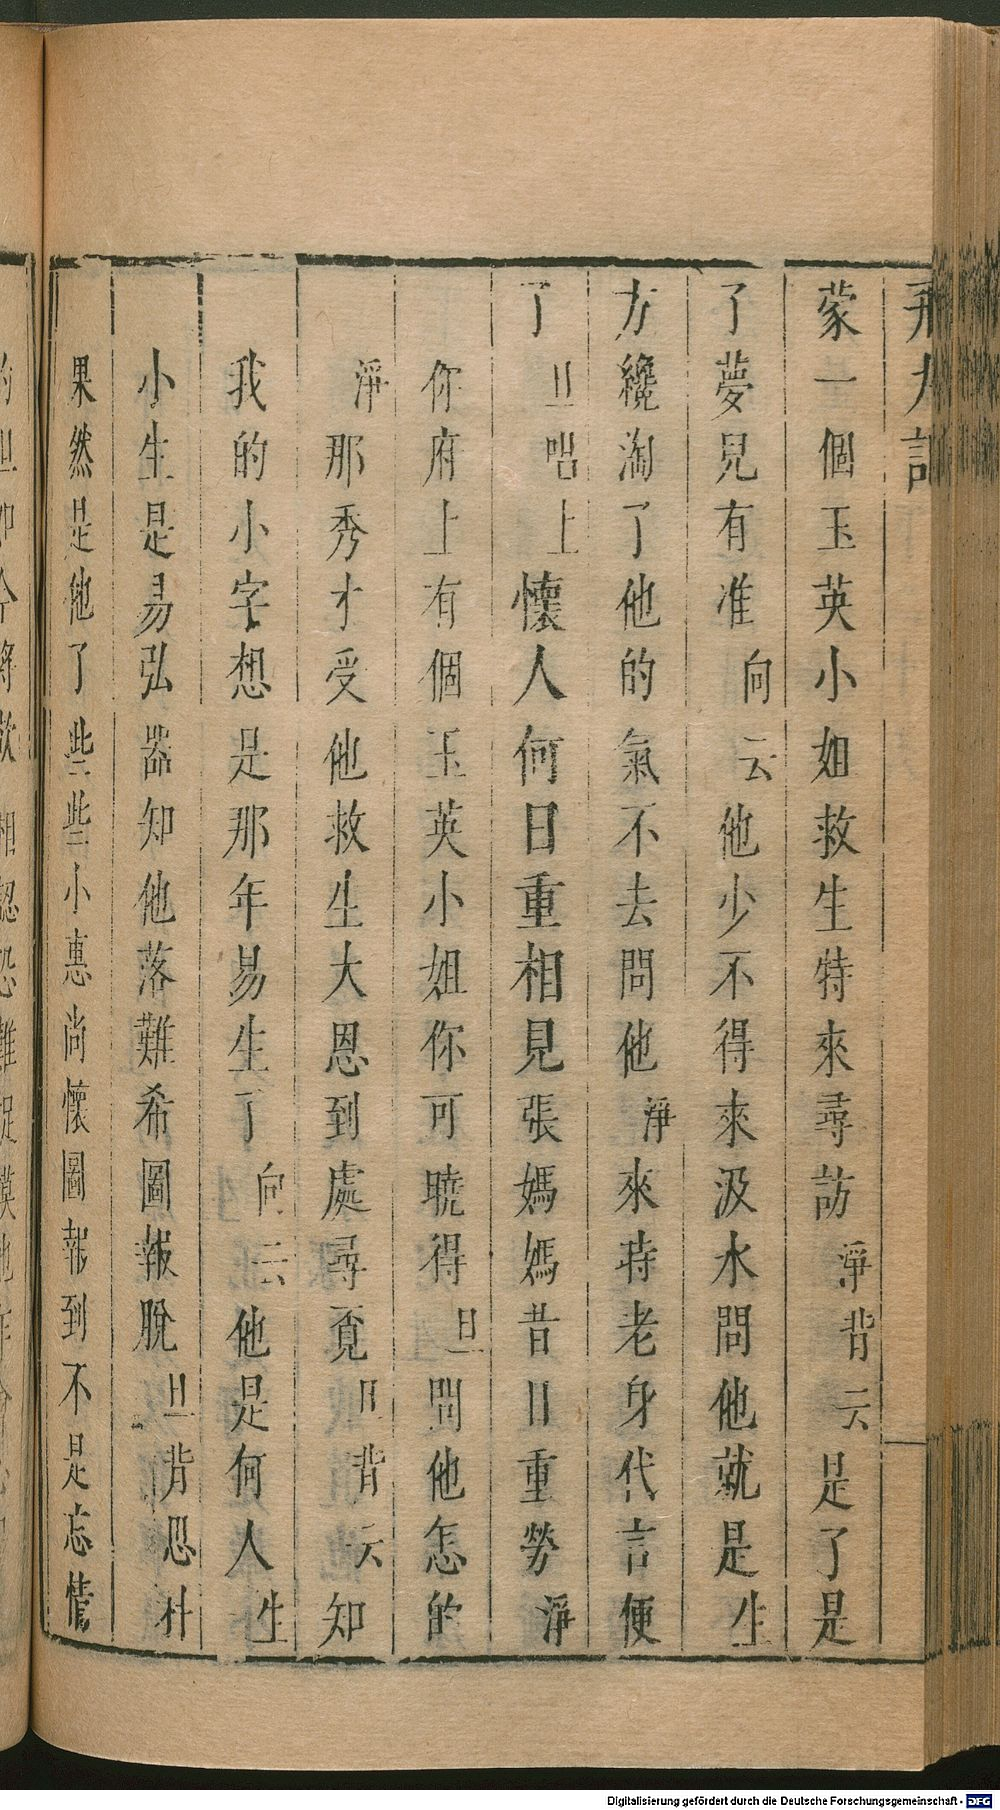 蒙一個玉英小如救生特來尋訪淨背云是了是
了夢兒有准向云他少不得來汲水問他就是生
方纔淘了他的氣不去問他淨來時老身代言便
了旦唱上懷人何日重相見張媽媽昔日重勞淨
你府上有個玉英小姐你可曉得旦問他怎的
淨那秀才受他救生大恩到處尋覓旦背云知
我的小字想是那年易生了向云他是何人生
小生是易弘器知他落難希圖報脫旦背忍科
果然是他了些些小惠尚懷圖報到不是忘情
Digitalisierung gefördert durch die Deutsche Forschungsgemeinschaft - DFG